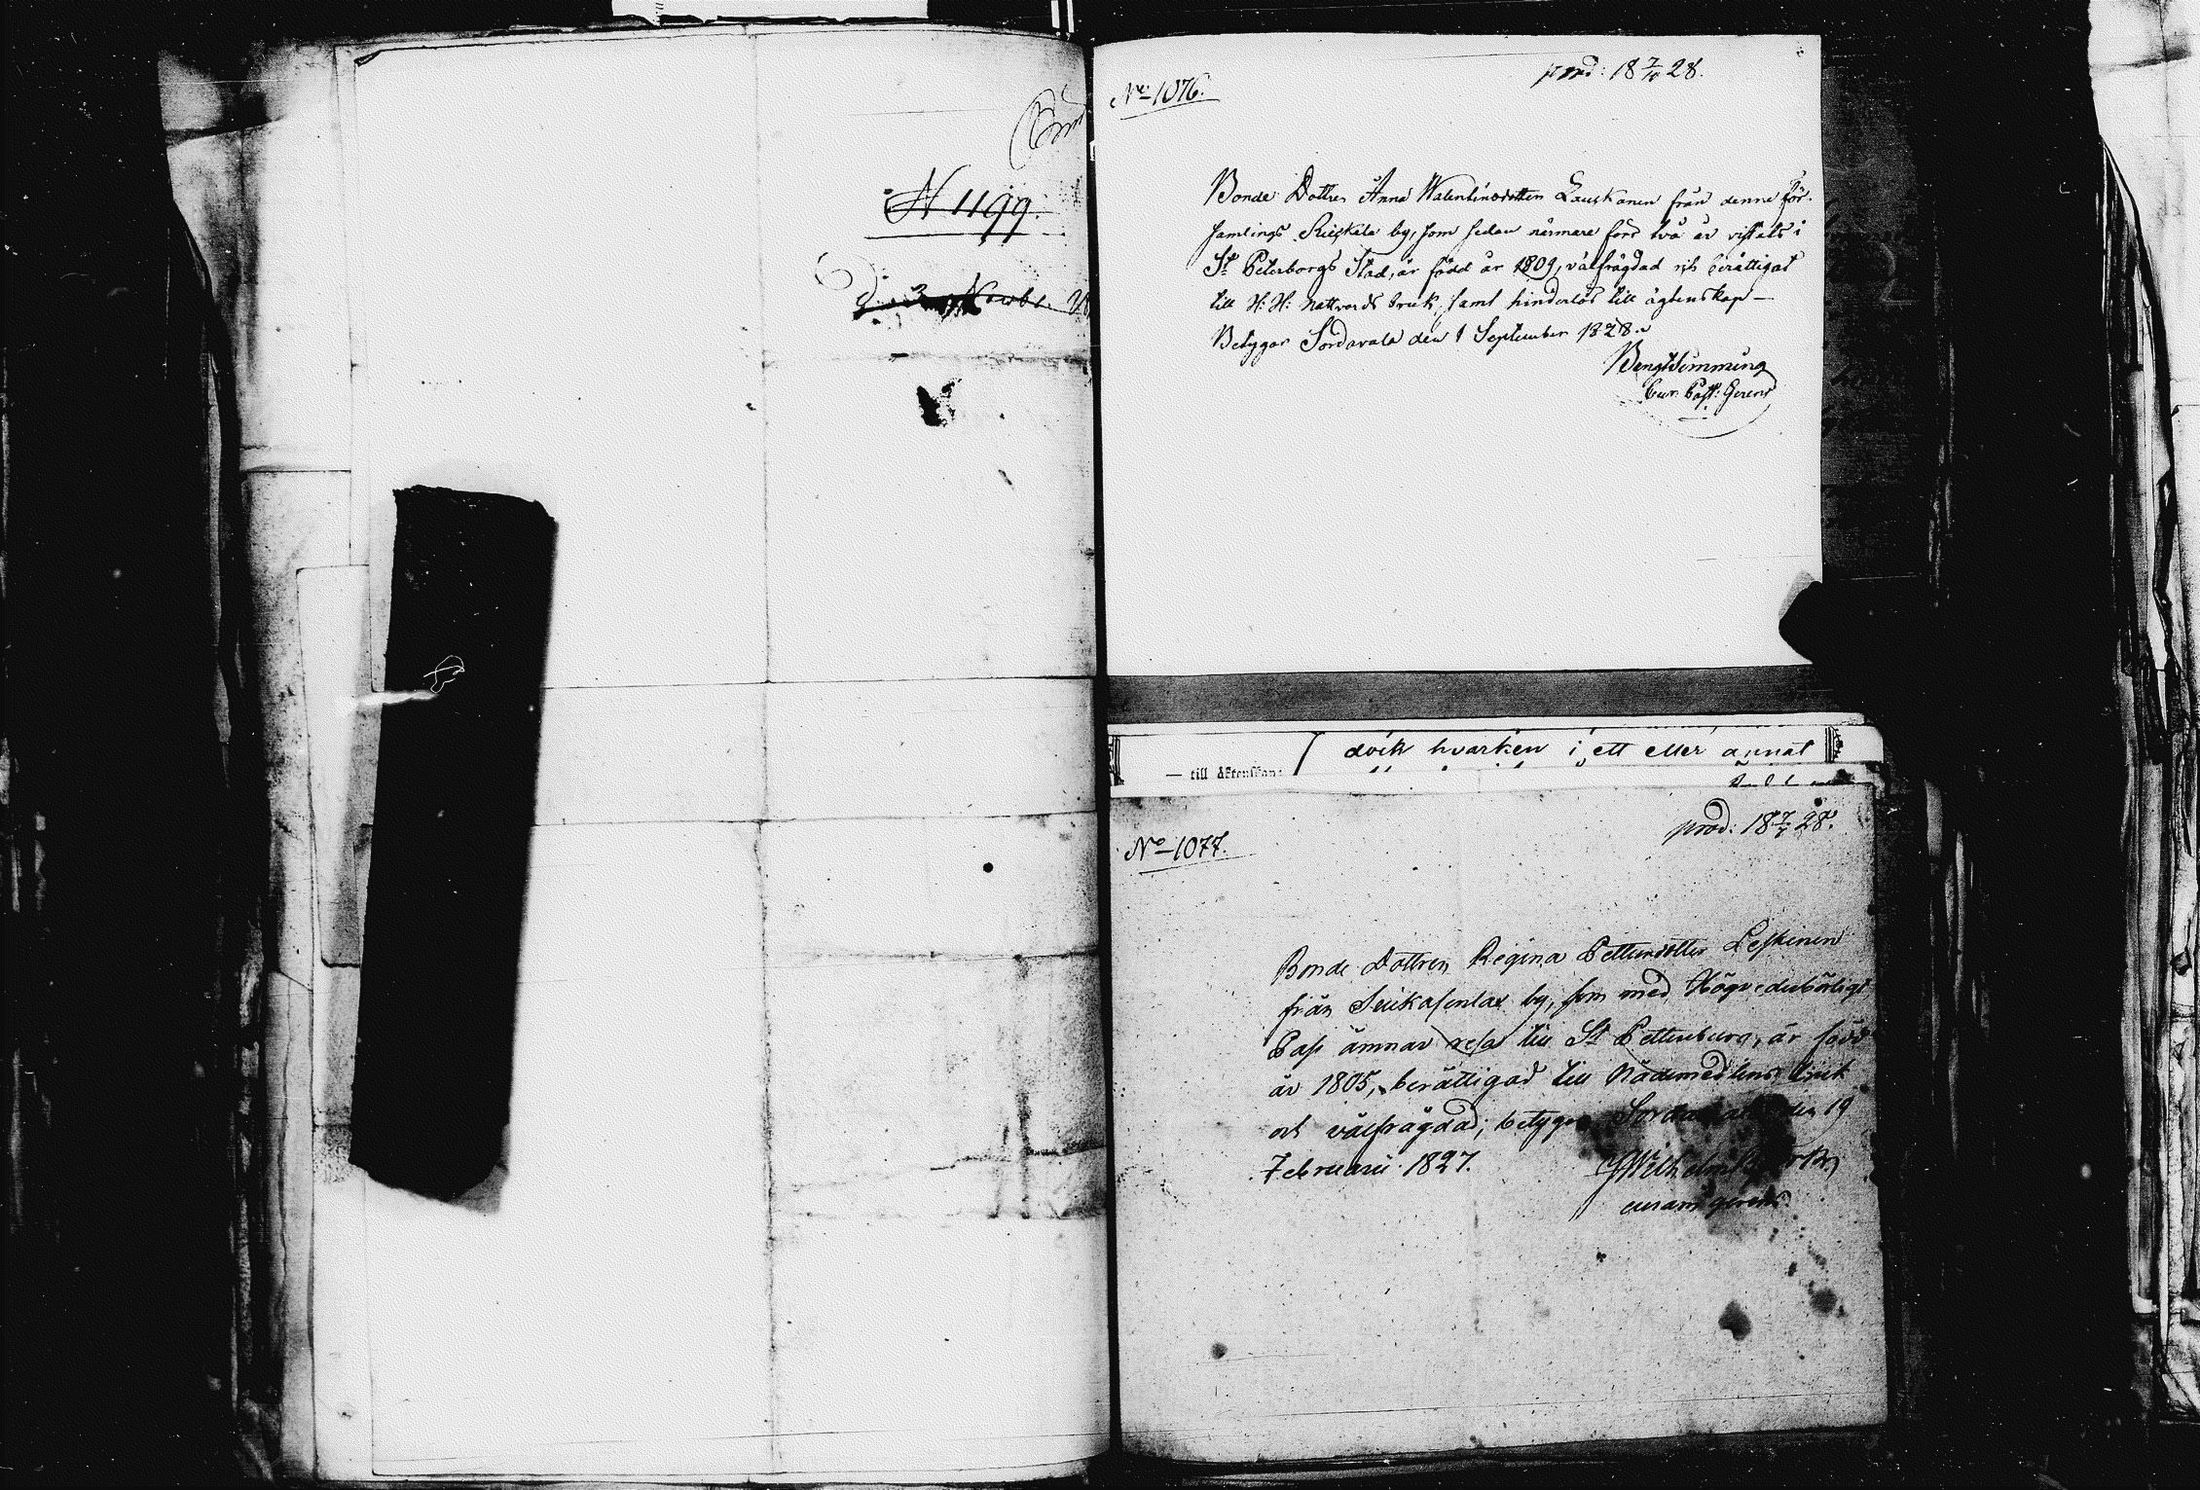 N 1199.
d. 3 Novbr.
No 1076.
prod: 18 7/10 28.
Bonde Dottren Anna Walentinsdotter Lauskanen från denne För-
samlings Rieskala by, som sedan närmare förd två år vistats i
St Peterborgs Stad, är född år 1809, välfrägdad och berättigad
till H: H: Nattvards bruk, samt hinderlös till ägtenskap —
Betygar Sordavala den 1 September 1828.
Bengt Simming
Cur. Past: Gerens
— till äktenskap:
dock hvarken i ett eller annat
No 1077.
prod: 18 7/ 28.
Bonde Dottren Regina Pettersdotter Leskinen
från Leukasenlax by, som med Högvederbörligt
Pass ämnar resa till St Pettersburg, är född
år 1805, berättigad till Nådemedlens bruk
och välfrägdad; betygar den 19
Februarii 1827.
curam gerens.